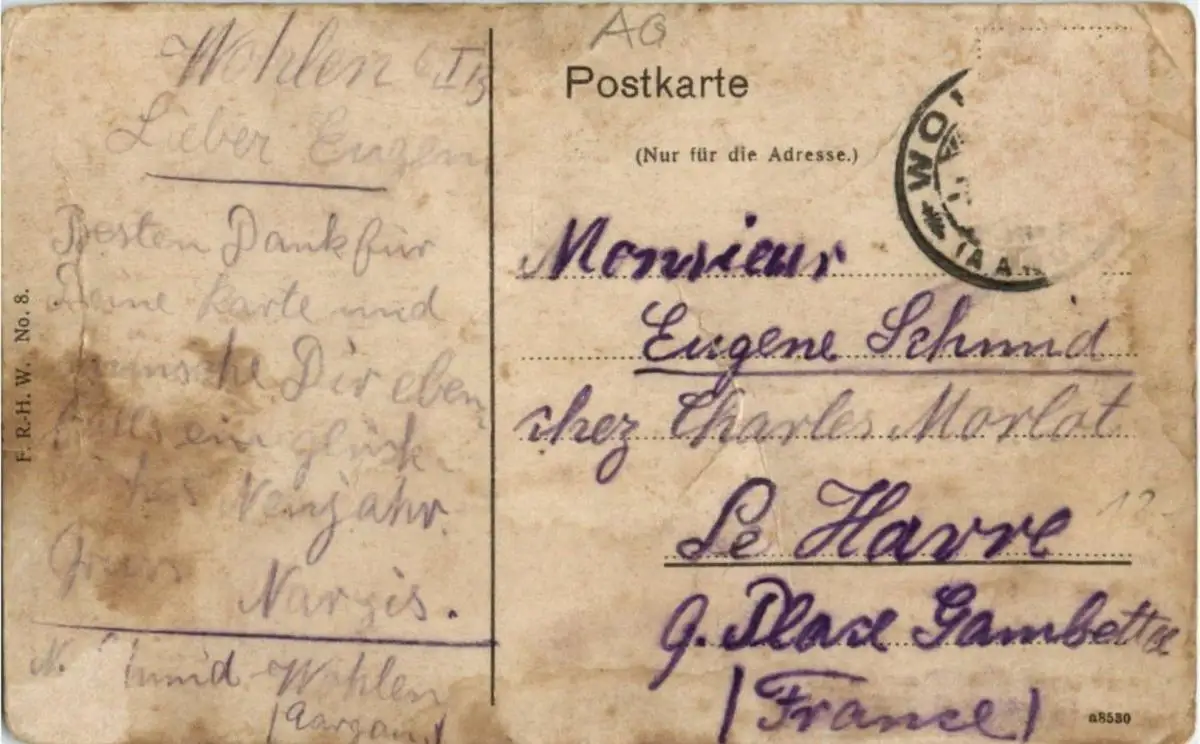 Wohlen 6 I 13
Lieber Eugen
Besten Dank für
Deine Karte und
wünsche Dir eben
falls ein glück-
liches Neujahr.
Gruss
Narzis.
N. Schmid Wohlen
(Aargau)
F. R.-H. W. No. 8.
AG
Postkarte
(Nur für die Adresse.)
WO
(AA
Monsieur
Eugene Schmid
chez Charles Morlot
Le Havre
9. Place Gambetta
(France)
12
a8530